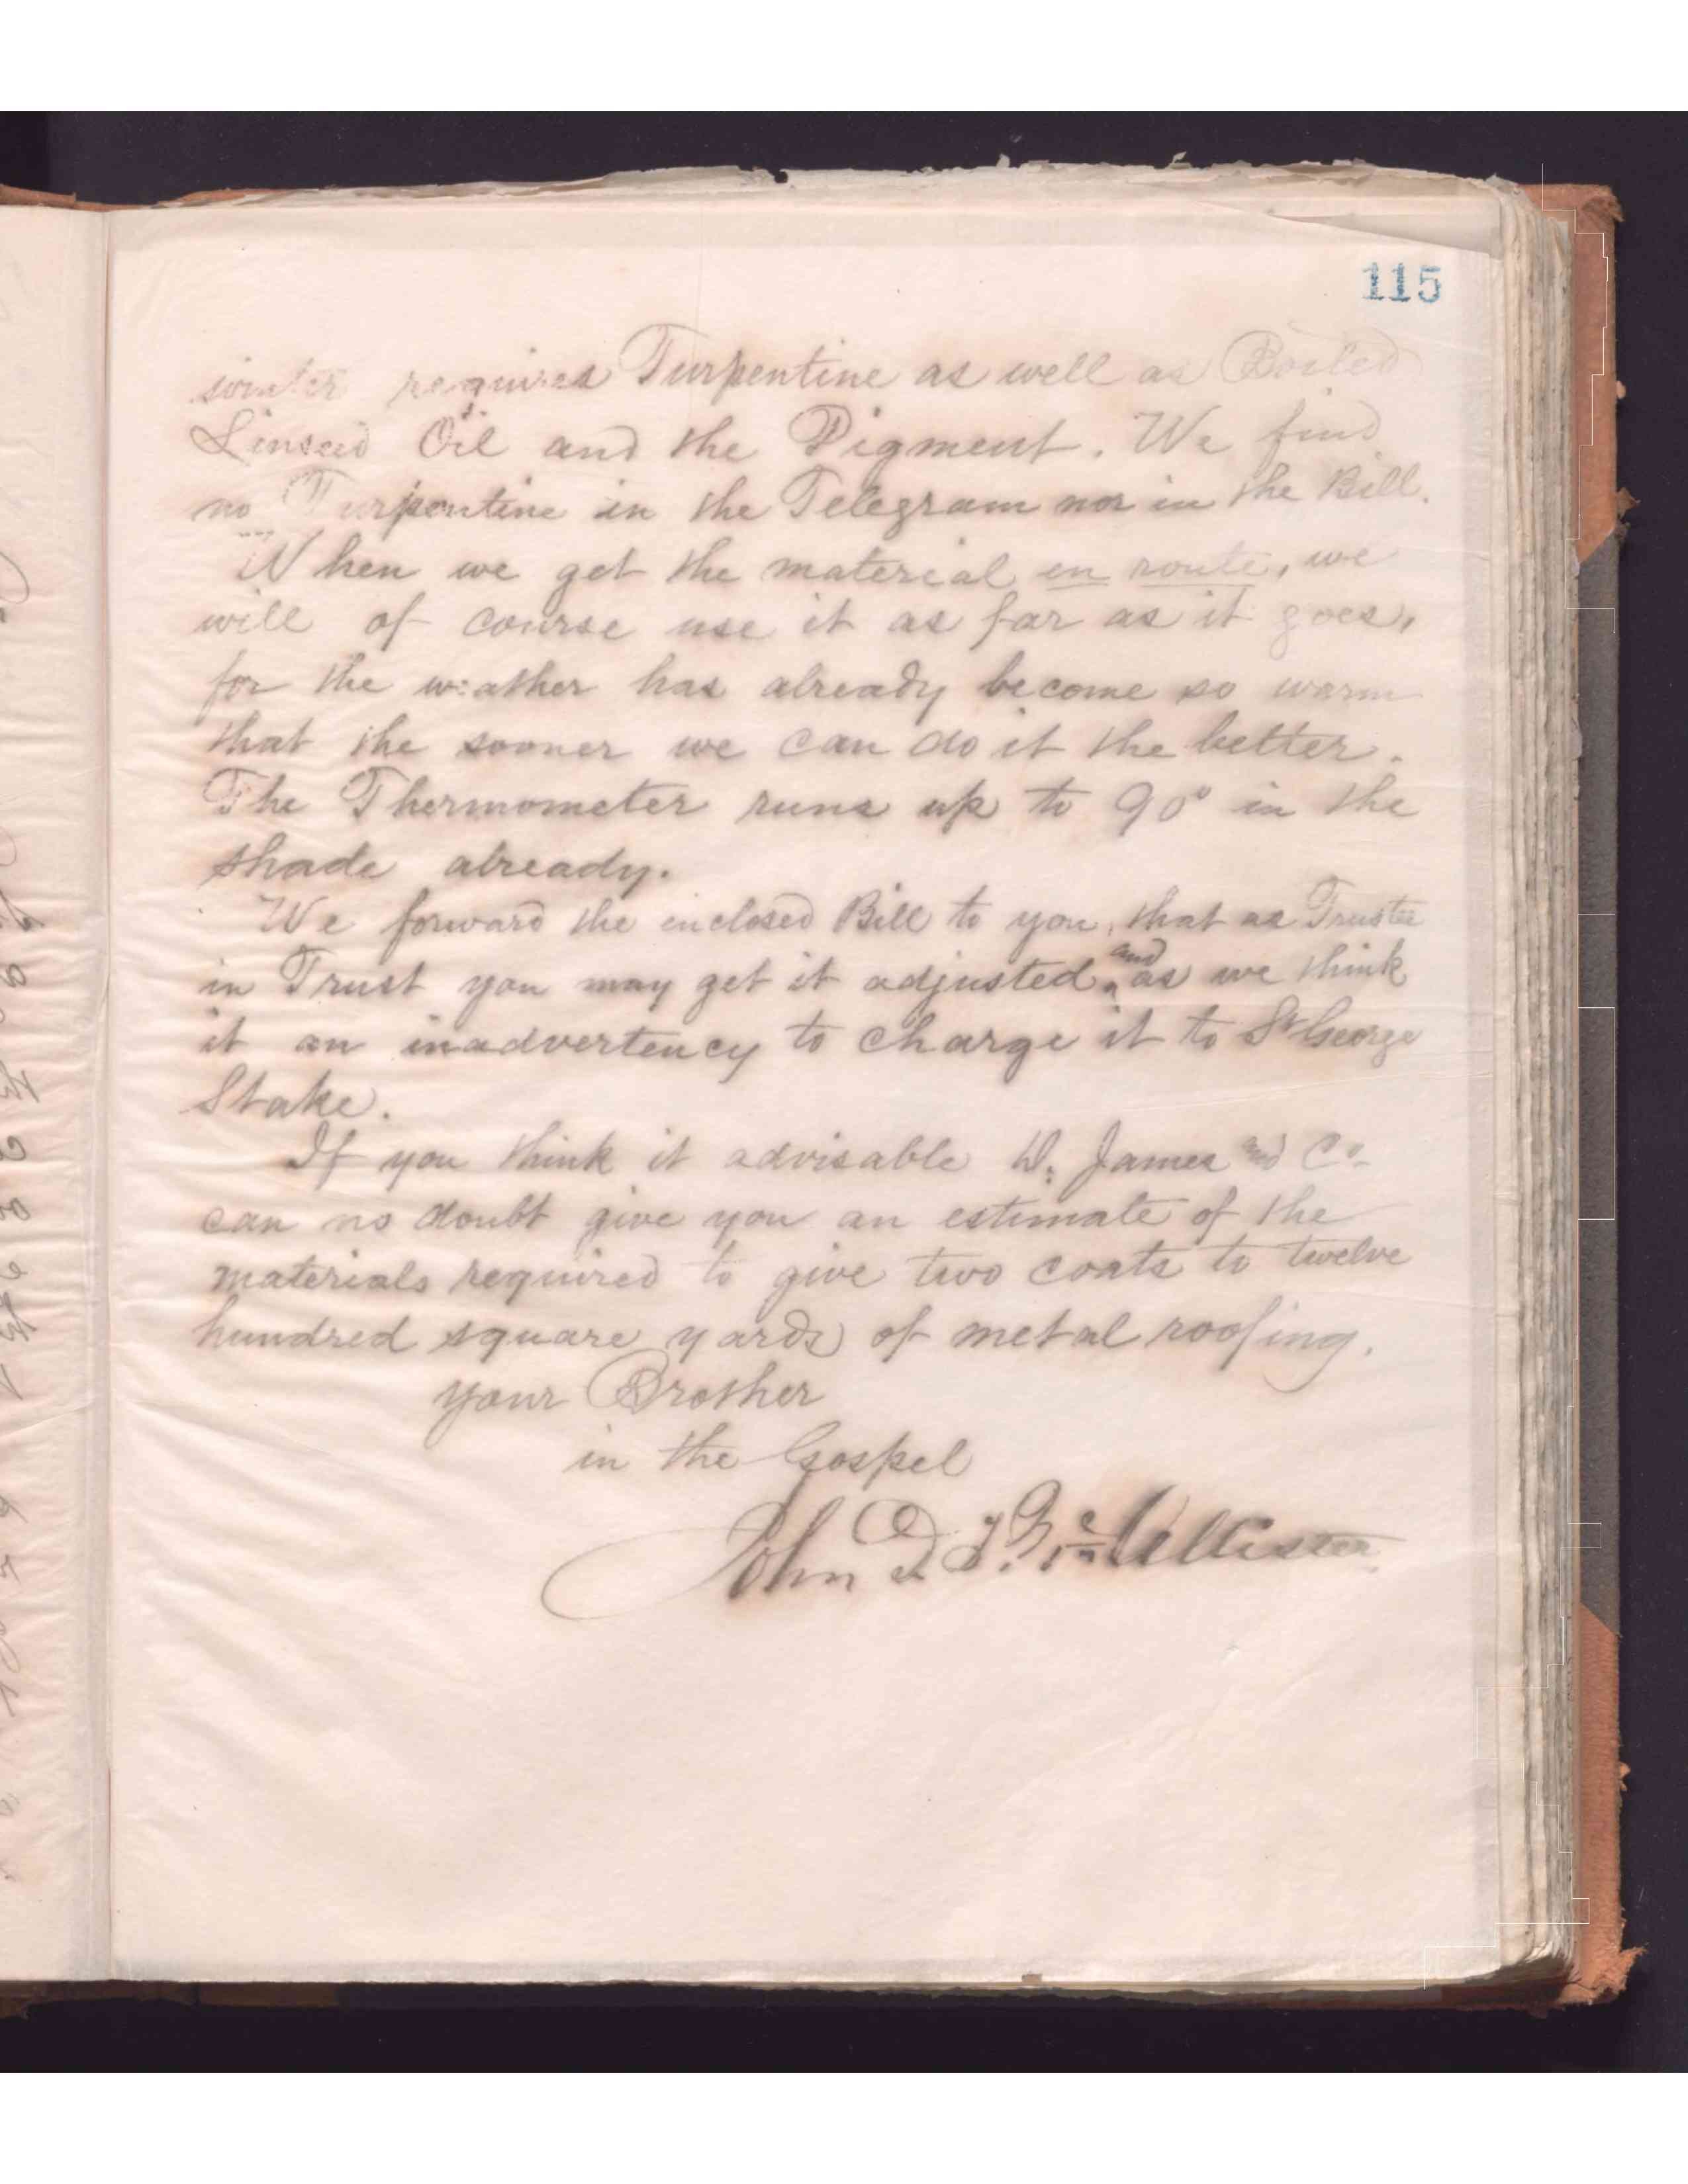 115
winter requires Turpentine as well as Boiled
Linseed Oil and the Pigment. We find
no Turpentine in the Telegram nor in the Bill.
When we get the material en route, we
will of course use it as far as it goes,
for the weather has already become so warm
that the sooner we can do it the better.
The Thermometer runs up to 90° in the
shade already.
We forward the inclosed Bill to you, that as Trustee
in Trust you may get it adjusted, and as we think
it an inadvertency to charge it to St George
Stake.
If you think it advisable D. James and Co.
can no doubt give you an estimate of the
materials required to give two coats to twelve
hundred square yards of metal roofing.
your Brother
in the Gospel
John D. T. McAllister